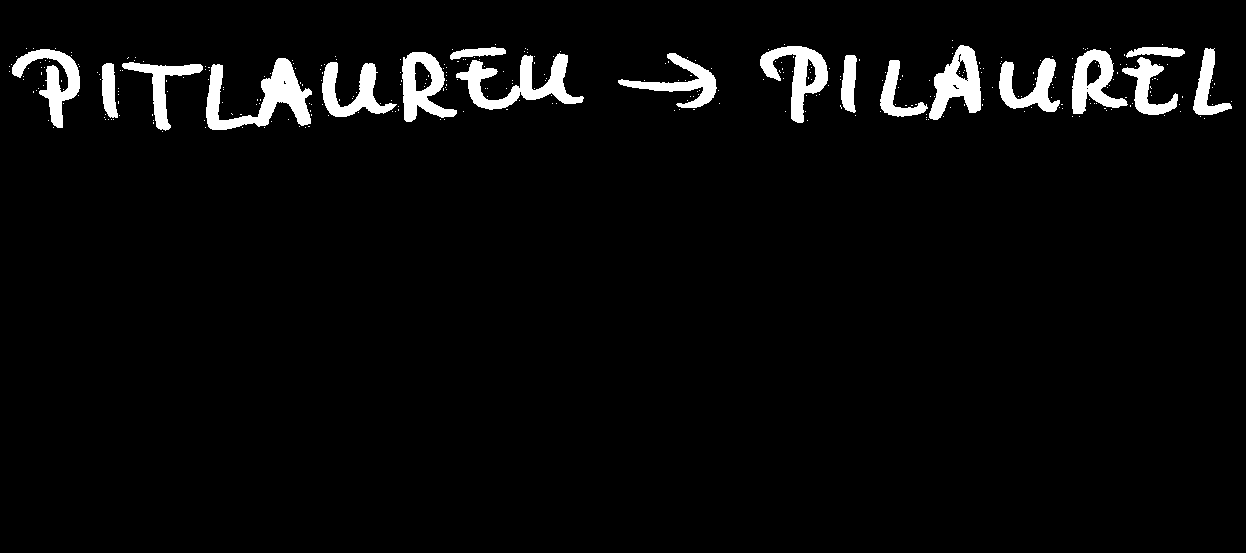 PITLAUREU → PILAUREL